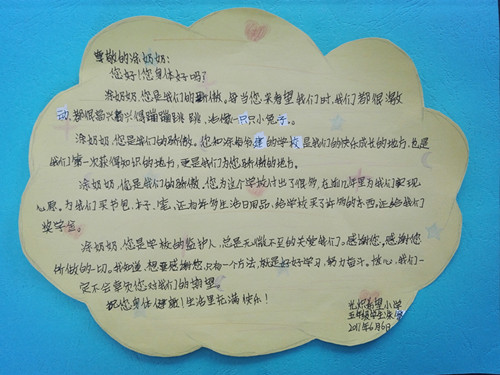 尊敬的涂奶奶:
您好!您身体好吗?
涂奶奶,您是我们的骄傲。每当您来看望我们时,我们都很激
动,都很高兴着,蹦蹦跳跳,也像一只只小兔子。
涂奶奶,您是我们的骄傲。您和涂爷爷建的学校是我们的快乐成长的地方,也是
我们第一次获得知识的地方,更是我们为您骄傲的地方。
涂奶奶,您是我们的骄傲。您为这个学校付出了很多,在这几年里为我们实现
心愿。为我们买书包、本子、笔,还有许多生活日用品,给学校买了许多的东西,还给我们
奖学金。
涂奶奶,您是学校的监护人,总是无微不至的关爱我们。感谢您,感谢您
所做的一切。我知道,想要感谢您,只有一个方法,就是好好学习,努力奋斗。放心,我们一
定不会辜负您对我们的期望。
祝您身体健康!生活里充满快乐!
希望小学
五年级学生
2011年6月6日